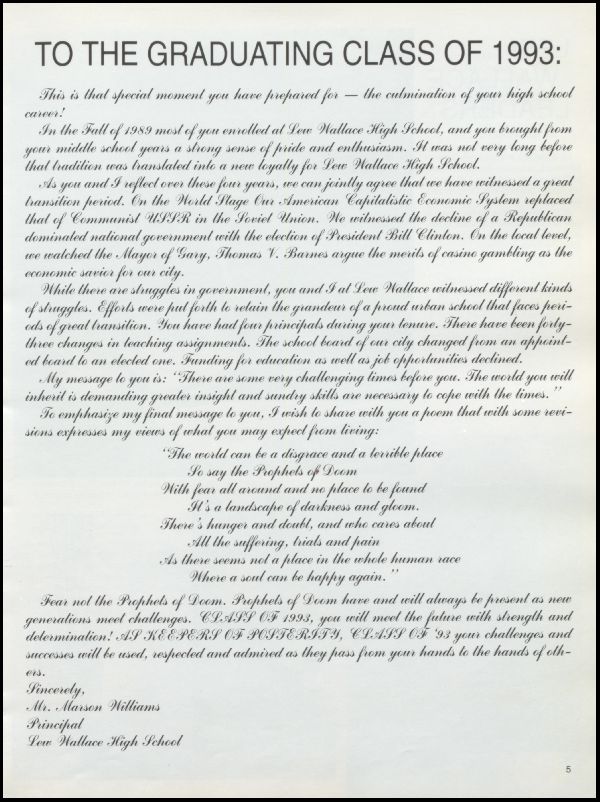 TO THE GRADUATING CLASS OF 1993:
This is that special moment you have prepared for — the culmination of your high school
career!
In the Fall of 1989 most of you enrolled at Lew Wallace High School, and you brought from
your middle school years a strong sense of pride and enthusiasm. It was not very long before
that tradition was translated into a new loyalty for Lew Wallace High School.
As you and I reflect over these four years, we can jointly agree that we have witnessed a great
transition period. On the World Stage Our American Capitalistic Economic System replaced
that of Communist USSR in the Soviet Union. We witnessed the decline of a Republican
dominated national government with the election of President Bill Clinton. On the local level,
we watched the Mayor of Gary, Thomas V. Barnes argue the merits of casino gambling as the
economic savior for our city.
While there are struggles in government, you and I at Lew Wallace witnessed different kinds
of struggles. Efforts were put forth to retain the grandeur of a proud urban school that faces peri-
ods of great transition. You have had four principals during your tenure. There have been forty-
three changes in teaching assignments. The school board of our city changed from an appoint-
ed board to an elected one. Funding for education as well as job opportunities declined.
My message to you is: "There are some very challenging times before you. The world you will
inherit is demanding greater insight and sundry skills are necessary to cope with the times."
To emphasize my final message to you, I wish to share with you a poem that with some revi-
sions expresses my views of what you may expect from living:
"The world can be a disgrace and a terrible place
So say the Prophets of Doom
With fear all around and no place to be found
It's a landscape of darkness and gloom.
There's hunger and doubt, and who cares about
All the suffering, trials and pain
As there seems not a place in the whole human race
Where a soul can be happy again."
Fear not the Prophets of Doom. Prophets of Doom have and will always be present as new
generations meet challenges. CLASS OF 1993, you will meet the future with strength and
determination! AS KEEPERS OF POSTERITY, CLASS OF '93 your challenges and
successes will be used, respected and admired as they pass from your hands to the hands of oth-
ers.
Sincerely,
Mr. Marson Williams
Principal
Lew Wallace High School
5